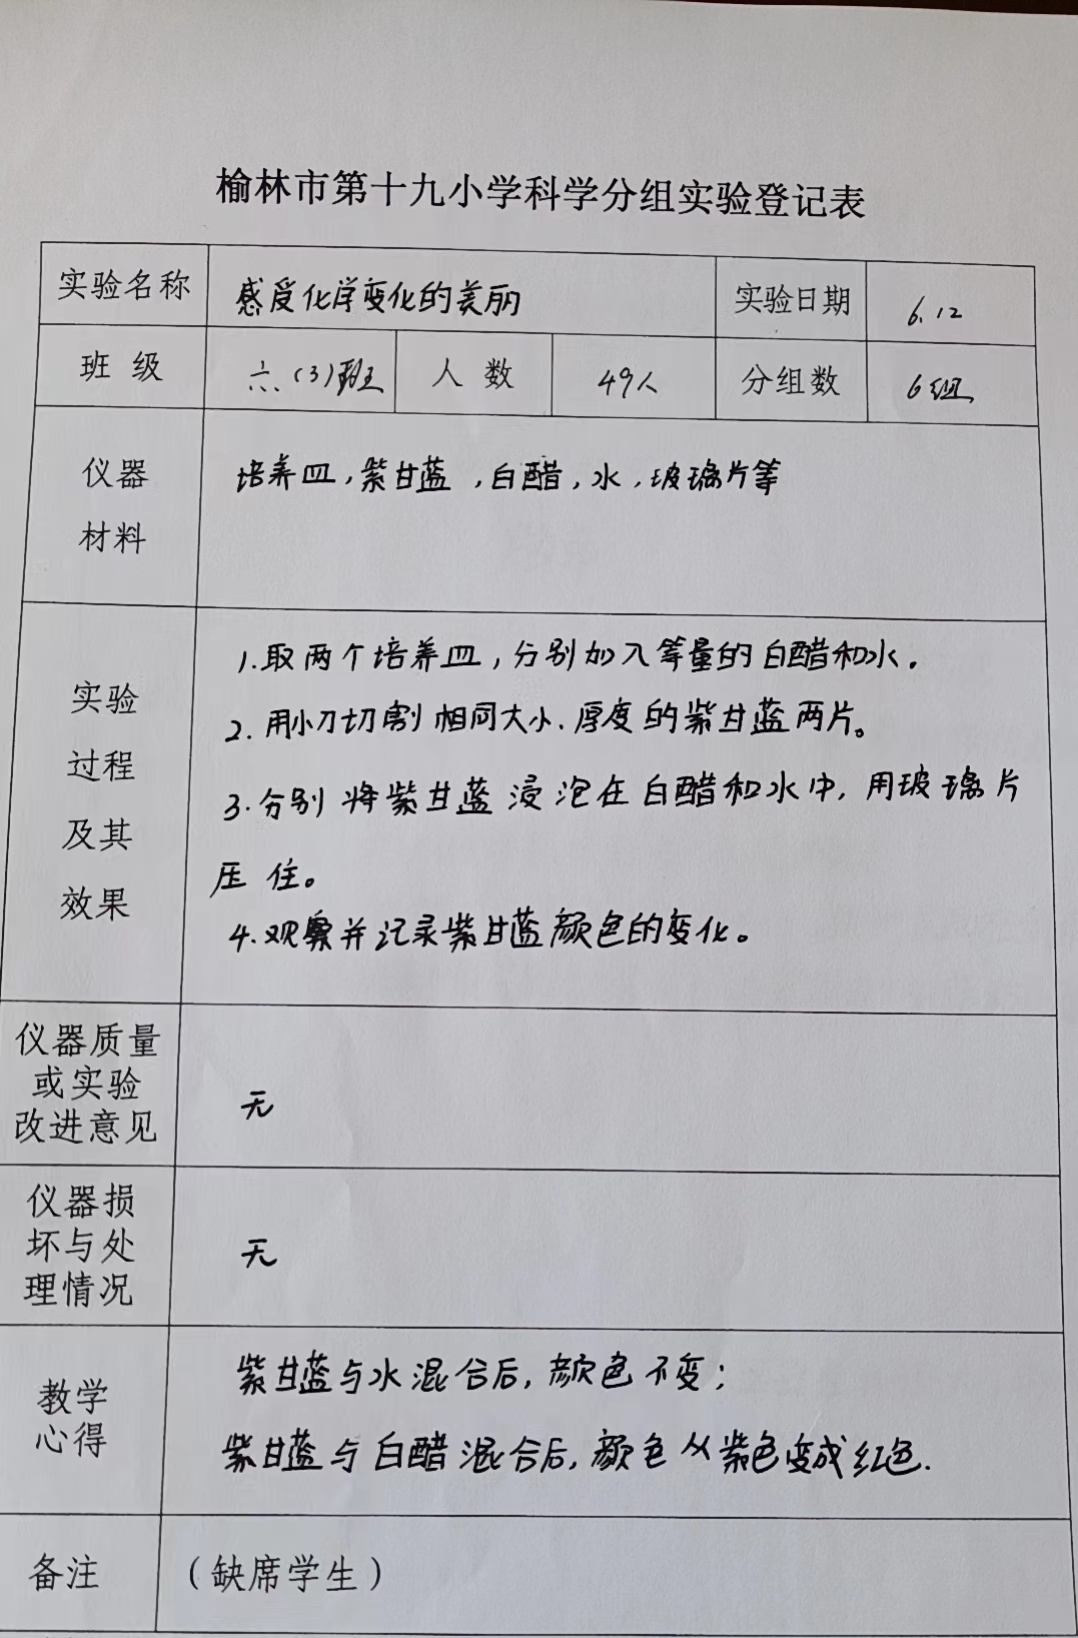 榆林市第十九小学科学分组实验登记表
实验名称 感受化学变化的美丽 实验日期 6.12
班 级 六.(3)班 人 数 49人 分组数 6组
仪器
材料
培养皿,紫甘蓝,白醋,水,玻璃片等
实验
过程
及其
效果
1.取两个培养皿,分别加入等量的白醋和水.
2.用小刀切割相同大小.厚度的紫甘蓝两片。
3.分别将紫甘蓝浸泡在白醋和水中,用玻璃片
压住。
4.观察并记录紫甘蓝颜色的变化。
仪器质量
或实验
改进意见
无
仪器损
坏与处
理情况
无
教学
心得
紫甘蓝与水混合后,颜色不变;
紫甘蓝与白醋混合后,颜色从紫色变成红色.
备注 (缺席学生)